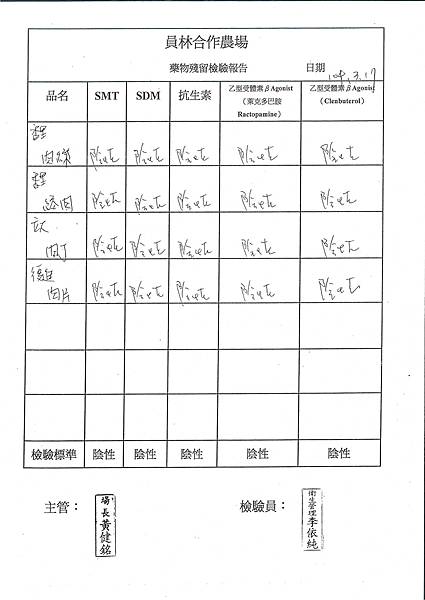 員林合作農場
藥物殘留檢驗報告 日期 104.3.17
品名 SMT SDM 抗生素 乙型受體素βAgonist (萊克多巴胺 Ractopamine) 乙型受體素βAgonist (Clenbuterol)
肉絲 陰性 陰性 陰性 陰性 陰性
絞肉 陰性 陰性 陰性 陰性 陰性
肉丁 陰性 陰性 陰性 陰性 陰性
肉片 陰性 陰性 陰性 陰性 陰性
檢驗標準 陰性 陰性 陰性 陰性 陰性
主管： 場長黃健銘 檢驗員： 衛生管理李依純